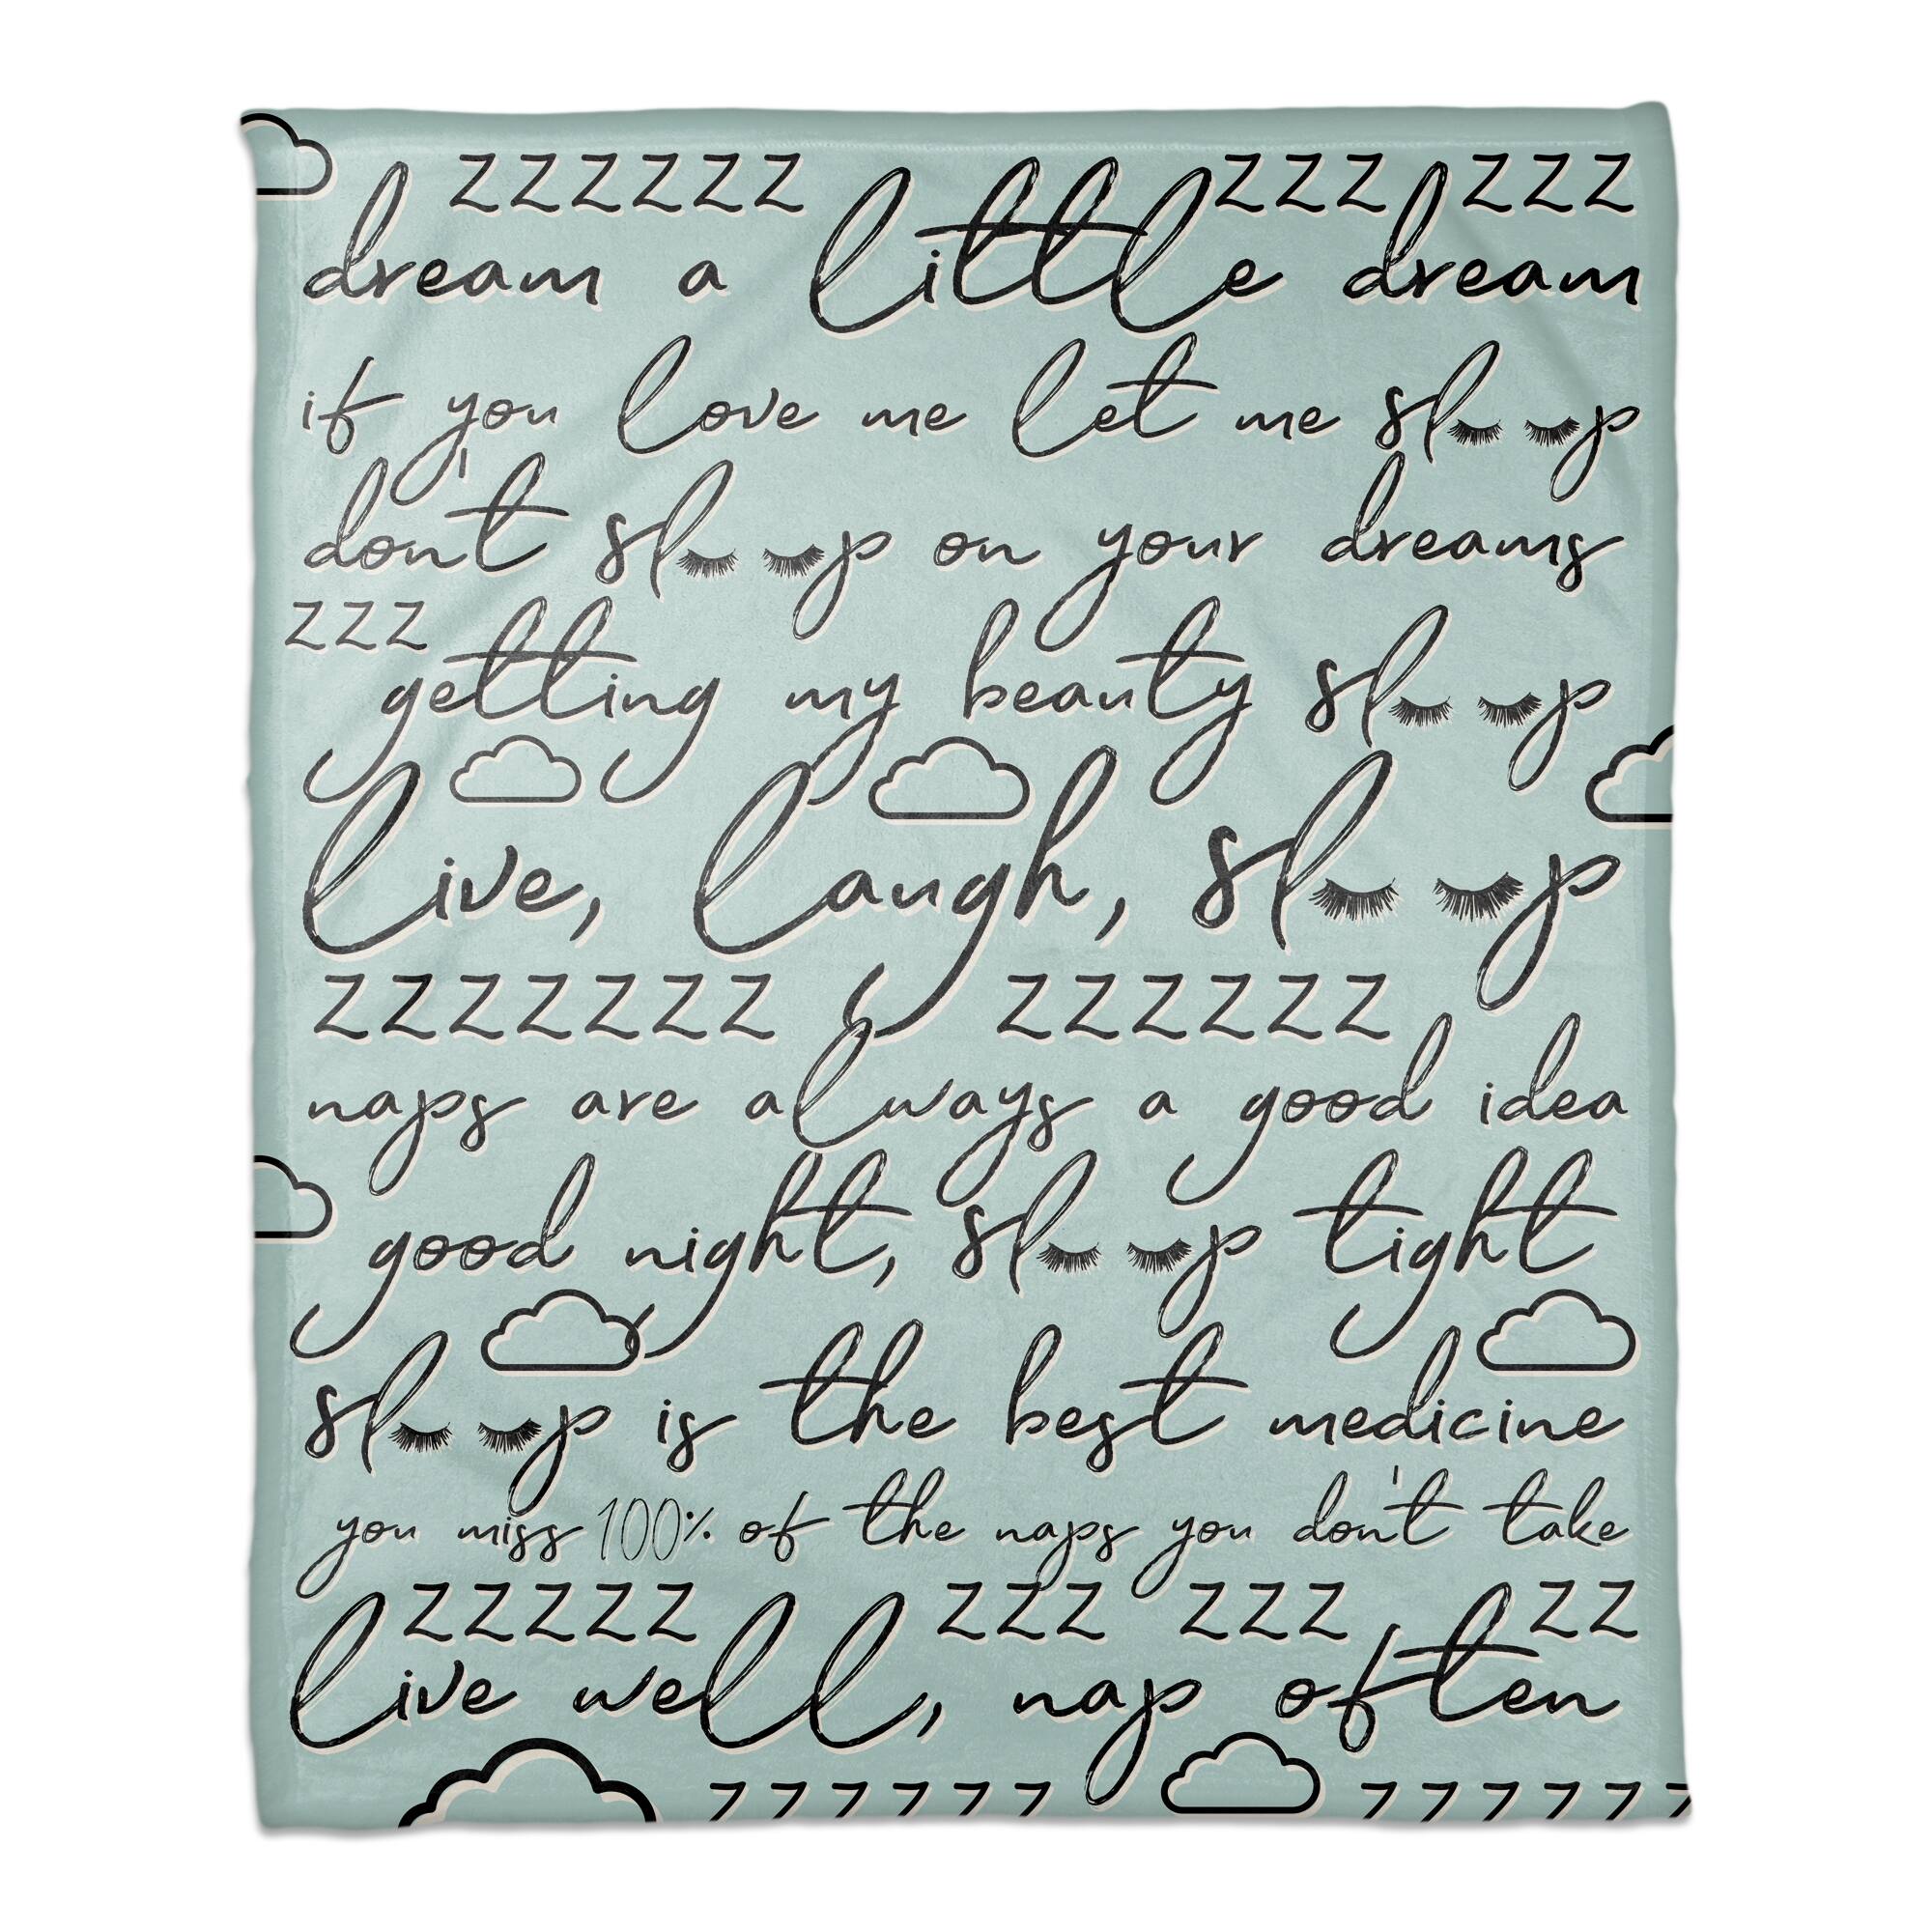 zzzzzz zzz zzz
dream a little dream
if you love me let me sleep
don't sleep on your dreams
zzz
getting my beauty sleep
live, laugh, sleep
zzzzzzz zzzzzz
naps are always a good idea
good night, sleep tight
sleep is the best medicine
you miss 100% of the naps you don't take
zzzzz zzz zzz zz
live well, nap often
zzzzzz zzzzzz